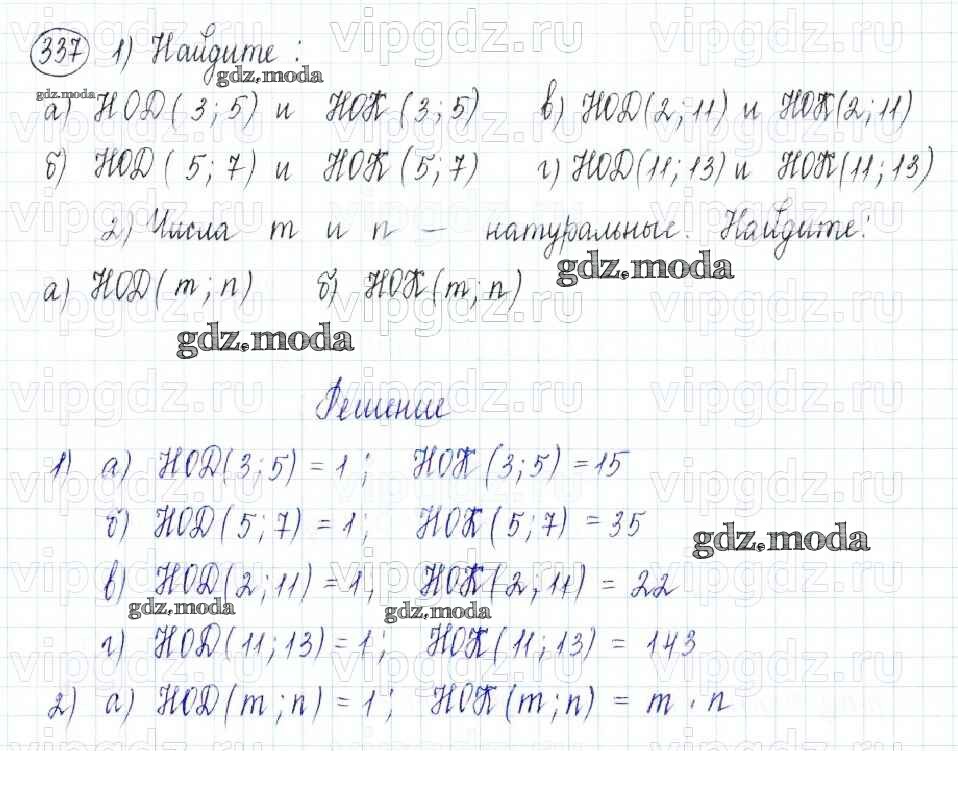 337 1) Найдите:
а) НОД(3;5) и НОК(3;5) в) НОД(2;11) и НОК(2;11)
б) НОД(5;7) и НОК(5;7) г) НОД(11;13) и НОК(11;13)
2) Числа m и n — натуральные. Найдите:
а) НОД(m;n) б) НОК(m;n)
Решение
1) а) НОД(3;5) = 1; НОК(3;5) = 15
б) НОД(5;7) = 1; НОК(5;7) = 35
в) НОД(2;11) = 1; НОК(2;11) = 22
г) НОД(11;13) = 1; НОК(11;13) = 143
2) а) НОД(m;n) = 1; НОК(m;n) = m · n
gdz.moda
gdz.moda
gdz.moda
gdz.moda
gdz.moda
gdz.moda
gdz.moda
vipgdz.ru